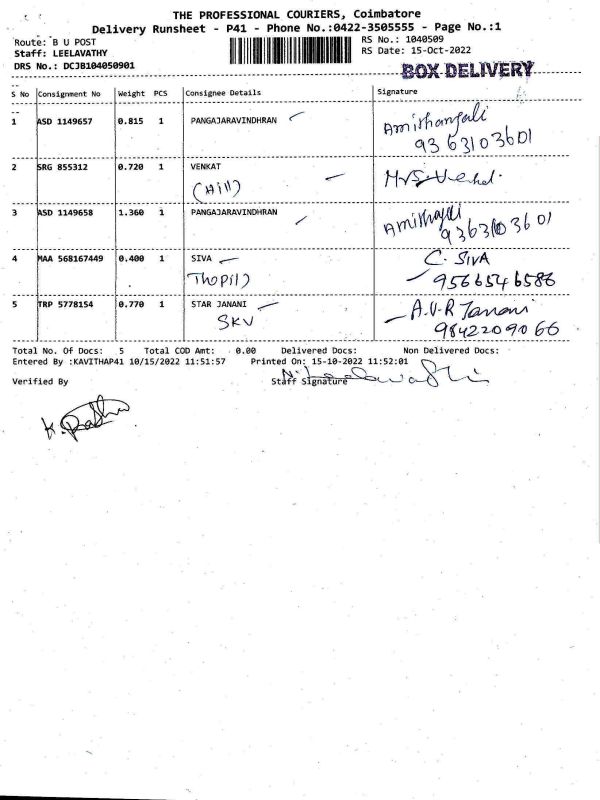 THE PROFESSIONAL COURIERS, Coimbatore
Delivery Runsheet - P41 - Phone No.:0422-3505555 - Page No.:1
Route: B U POST
RS No.: 1040509
Staff: LEELAVATHY
RS Date: 15-Oct-2022
DRS No.: DCJB104050901
BOX DELIVERY
S No Consignment No Weight PCS Consignee Details Signature
1 ASD 1149657 0.815 1 PANGAJARAVINDHRAN Amithanjali
9363103601
2 SRG 855312 0.720 1 VENKAT
(Hill)
3 ASD 1149658 1.360 1 PANGAJARAVINDHRAN
9363103601
4 MAA 568167449 0.400 1 SIVA C. SIVA
9566546586
5 TRP 5778154 0.770 1 STAR JANANI A.V.R Janani
SKV 9842209066
Total No. Of Docs: 5 Total COD Amt: 0.00 Delivered Docs: Non Delivered Docs:
Entered By :KAVITHAP41 10/15/2022 11:51:57 Printed On: 15-10-2022 11:52:01
Verified By Staff Signature